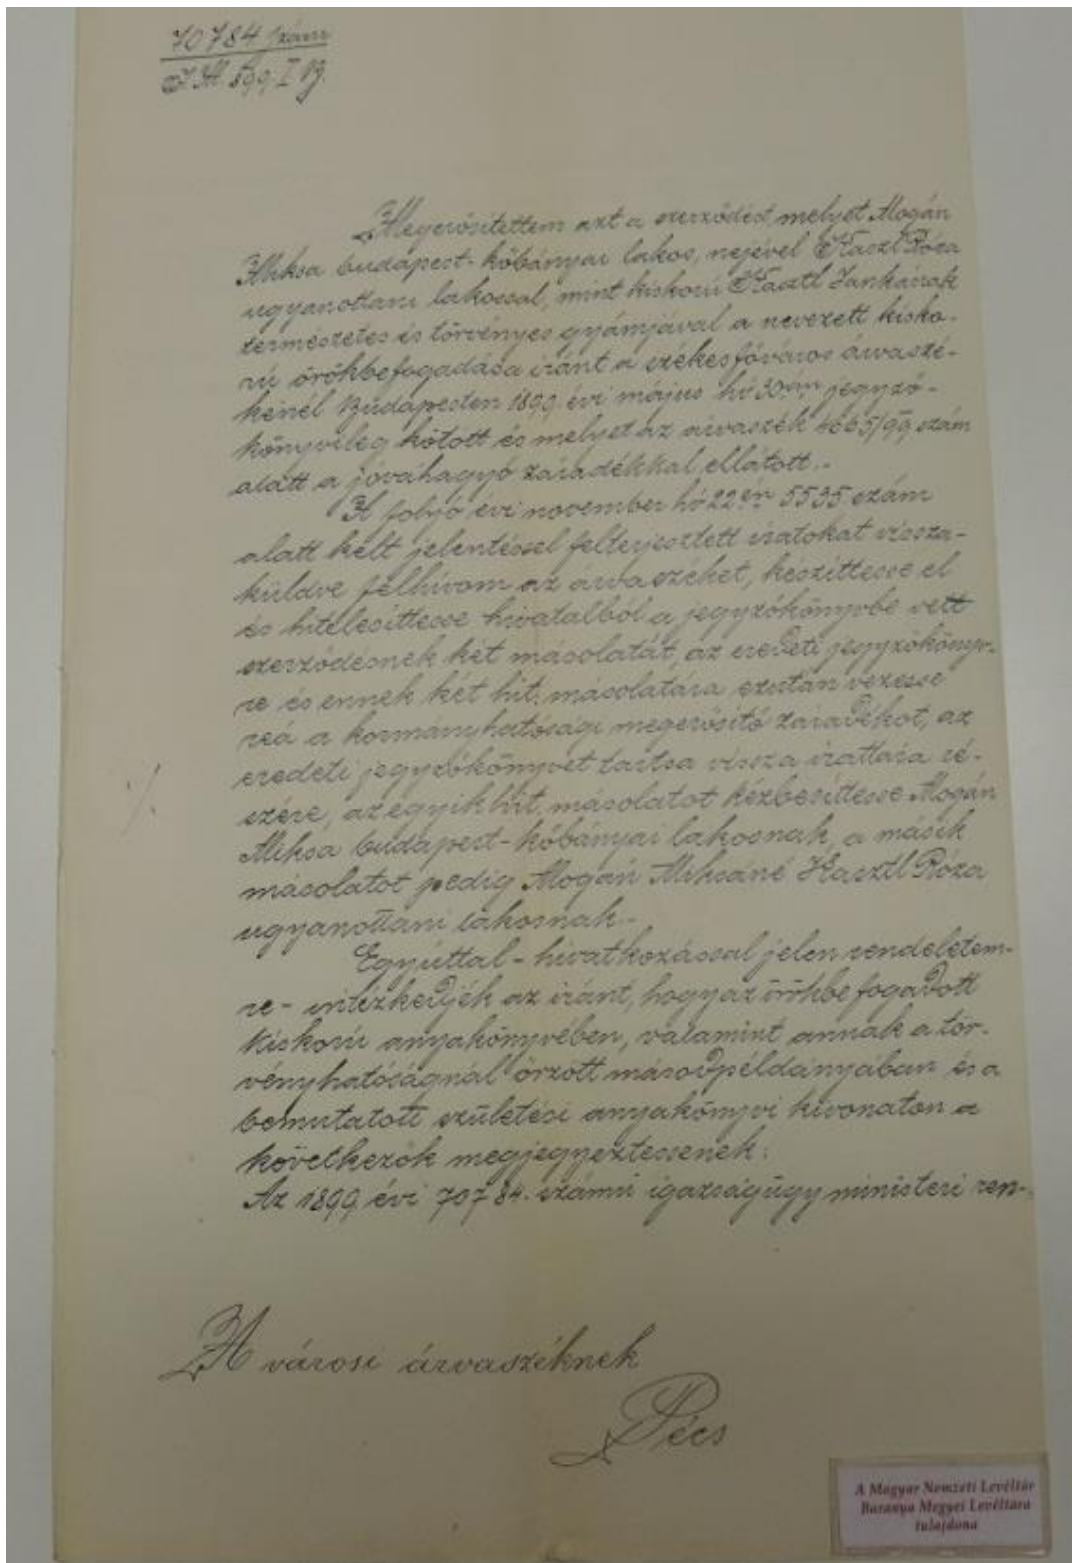 70784 szám
I.M. 899 I B.
Megerősítettem azt a szerződést, melyet Mogán
Miksa budapest-kőbányai lakos, nejével Hasztl Róza
ugyanottani lakossal, mint kiskorú Hasztl Jankának
természetes és törvényes gyámjával a nevezett kisko-
rú örökbefogadása iránt a székesfőváros árvaszé-
kénél Budapesten 1899. évi május hó 30án jegyző-
könyvileg kötött és melyet az árvaszék 4665/99 szám
alatt a jóváhagyó záradékkal ellátott.-
A folyó évi november hó 22én 5535 szám
alatt kelt jelentéssel felterjesztett iratokat vissza-
küldve felhívom az árvaszéket, készíttesse el
és hitelesíttesse hivatalból a jegyzőkönyvbe vett
szerződésnek két másolatát, az eredeti jegyzőköny-
re és ennek két hit. másolatára ezután vezesse
reá a kormányhatósági megerősítő záradékot, az
eredeti jegyzőkönyvet tartsa vissza irattára ré-
szére, az egyik hit. másolatot kézbesíttesse Mogán
Miksa budapest-kőbányai lakosnak, a másik
másolatot pedig Mogán Miksáné Hasztl Róza
ugyanottani lakosnak.-
Egyúttal - hivatkozással jelen rendeletem-
re - intézkedjék az iránt, hogy az örökbe fogadott
kiskorú anyakönyvében, valamint annak a tör-
vényhatóságnál őrzött másodpéldányában és a
bemutatott születési anyakönyvi kivonaton a
következők megjegyeztessenek:
Az 1899 évi 70784. számú igazságügy ministeri ren-
A városi árvaszéknek
Pécs
A Magyar Nemzeti Levéltár
Baranya Megyei Levéltára
tulajdona